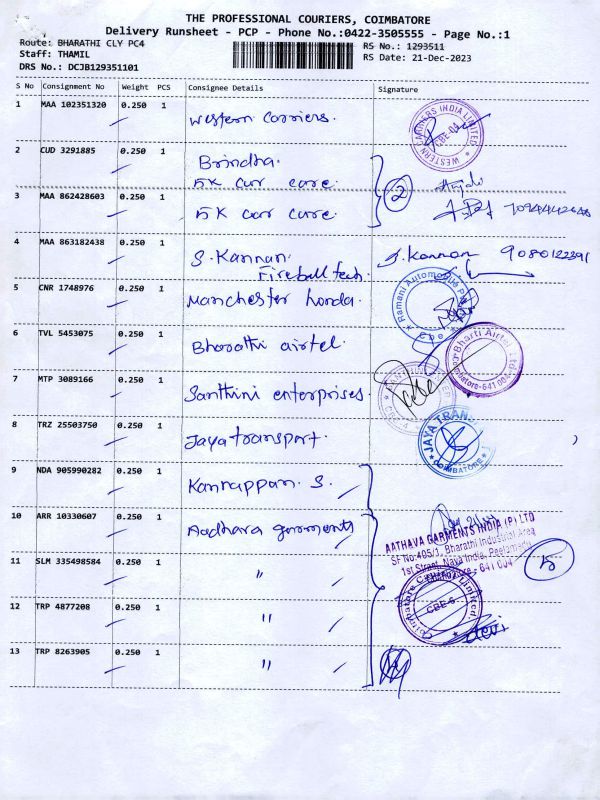 THE PROFESSIONAL COURIERS, COIMBATORE
Delivery Runsheet - PCP - Phone No.:0422-3505555 - Page No.:1
Route: BHARATHI CLY PC4
RS No.: 1293511
Staff: THAMIL
RS Date: 21-Dec-2023
DRS No.: DCJB129351101
S No Consignment No Weight PCS Consignee Details Signature
1 MAA 102351320 0.250 1 Western Carriers.
WESTERN CARRIERS INDIA LIMITED CBE-04
2 CUD 3291885 0.250 1 Brindha.
5K car care. 2
3 MAA 862428603 0.250 1 5K car care.
4 MAA 863182438 0.250 1 S. Kannan. S. Kannan 9080122391
Fireball tech.
5 CNR 1748976 0.250 1 Manchester honda.
Ramani Automotive Cbe
6 TVL 5453075 0.250 1 Bharathi airtel.
Bharti Airtel Ltd. Coimbatore-641 004
7 MTP 3089166 0.250 1 Santhini enterprises.
8 TRZ 25503750 0.250 1 Jaya transport.
JAYA TRANS COIMBATORE
9 NDA 905990282 0.250 1 Kannappan. S.
10 ARR 10330607 0.250 1 Aadhava garments
AATHAVA GARMENTS INDIA (P) LTD
SF No:405/1, Bharathi Industrial Area
1st Street, Nava India, Peelamedu
Coimbatore - 641 004
5
11 SLM 335498584 0.250 1 "
Limited. CBE-6
12 TRP 4877208 0.250 1 "
devi
13 TRP 8263905 0.250 1 "